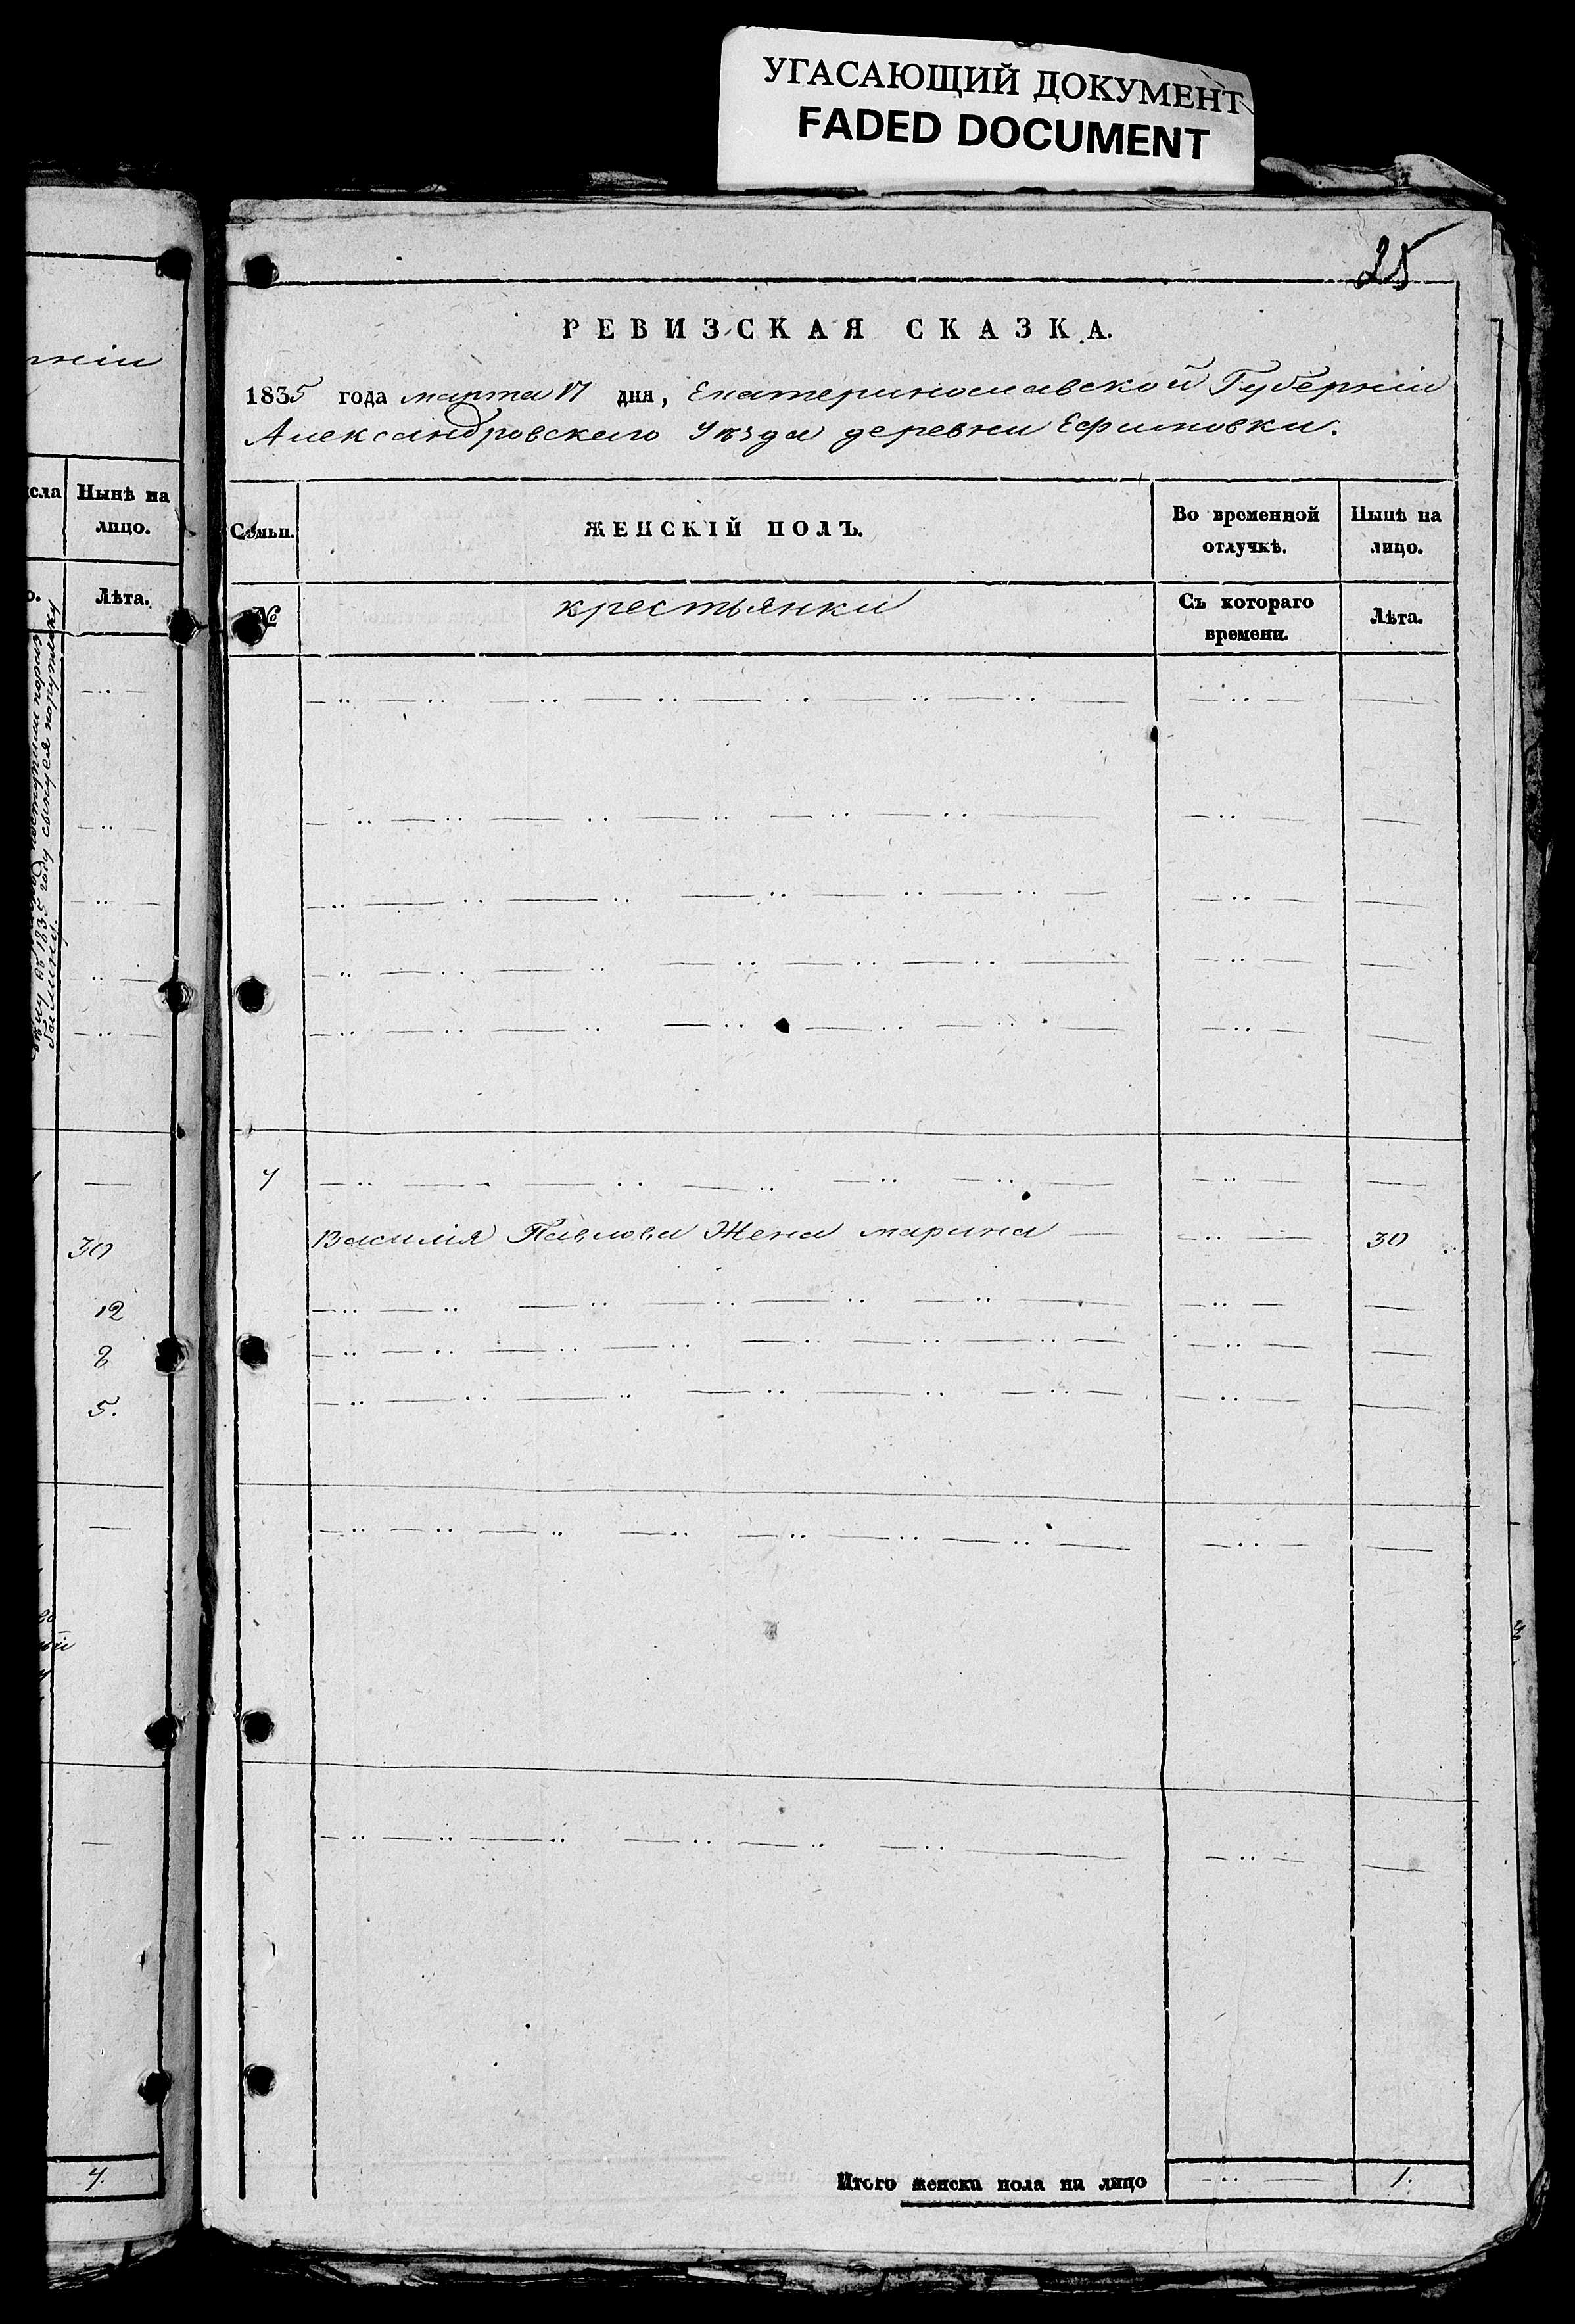 УГАСАЮЩИЙ ДОКУМЕНТ
FADED DOCUMENT
25
РЕВИЗСКАЯ СКАЗКА.
1835 года марта 17 дня, Екатеринославской Губерніи
Александровскаго Уѣзда деревни Ефимовки.
Семьи. ЖЕНСКІЙ ПОЛЪ. Во временной отлучкѣ. Нынѣ на лицо.
№ крестьянки Съ котораго времени. Лѣта.
4
Василія Павлова Жена марина 30
Итого женска пола на лицо 1.
рніи
сла Нынѣ на
лицо.
о. Лѣта.
30
12
8
5.
4.